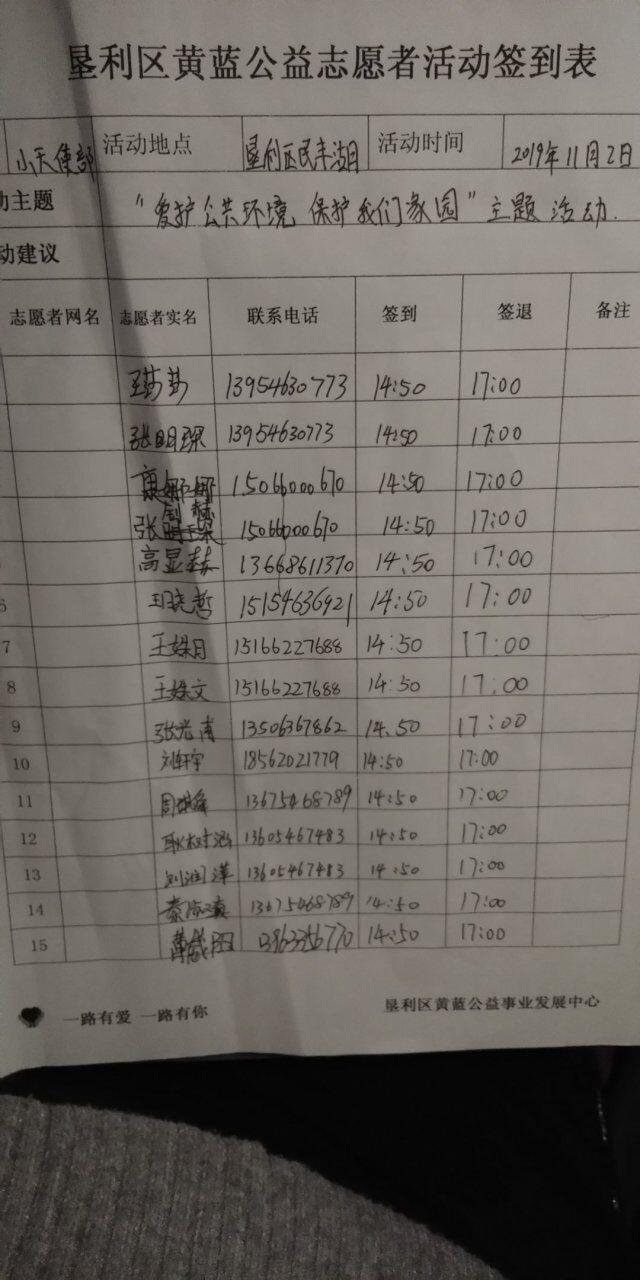 垦利区黄蓝公益志愿者活动签到表
小天使部 活动地点 垦利区民丰湖 活动时间 2019年11月2日
动主题 “爱护公共环境 保护我们家园”主题活动.
动建议
志愿者网名 志愿者实名 联系电话 签到 签退 备注
13954630773 14:50 17:00
张明琛 13954630773 14:50 17:00
康娜娜 15066000670 14:50 17:00
张 15066000670 14:50 17:00
高显赫 13668611370 14:50 17:00
6 王晓哲 15154636921 14:50 17:00
7 王姝月 15166227688 14:50 17:00
8 王姝文 15166227688 14:50 17:00
9 13506367862 14:50 17:00
10 刘轩宇 18562021779 14:50 17:00
11 13675468789 14:50 17:00
12 13605467483 14:50 17:00
13 刘润泽 13605467483 14:50 17:00
14 13675468789 14:50 17:00
15 14:50 17:00
一路有爱 一路有你 垦利区黄蓝公益事业发展中心